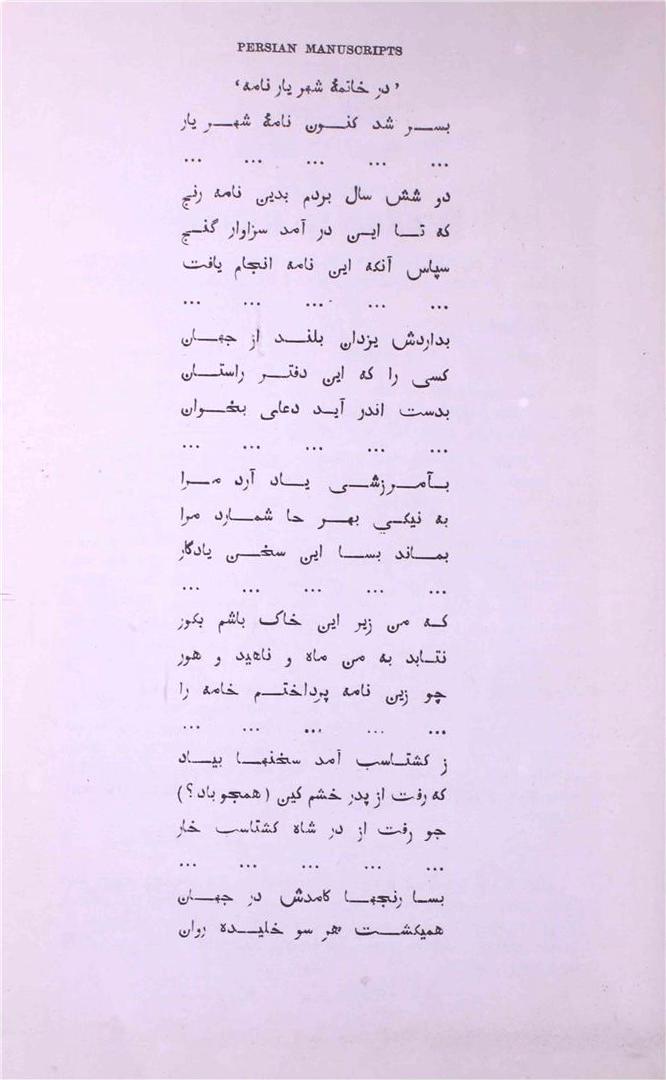 PERSIAN MANUSCRIPTS
’ در خاتمهٔ شهر یار نامه ‘
بسر شد کنون نامهٔ شهر یار
... ... ... ... ...
دو شش سال بردم بدین نامه رنج
که تا این در آمد سزاوار گنج
سپاس آنکه این نامه انجام یافت
... ... ... ... ...
بداردش یزدان بلند از جهان
کسی را که این دفتر راستان
بدست اندر آید دعای بخوان
... ... ... ... ...
بآمرزشی یاد آرد مرا
به نیکي بهر حا شمارد مرا
بماند بسا این سخن یادگار
... ... ... ... ...
که من زیر این خاک باشم بکور
نتابد به من ماه و ناهید و هور
چو زین نامه پرداختم خامه را
... ... ... ... ...
ز کشتاسب آمد سخنها بیاد
که رفت از پدر خشم کین ( همجو باد ؟ )
جو رفت از در شاه کشتاسب خار
... ... ... ... ...
بسا رنجها کامدش در جهان
همیکشت هر سو خلیده روان